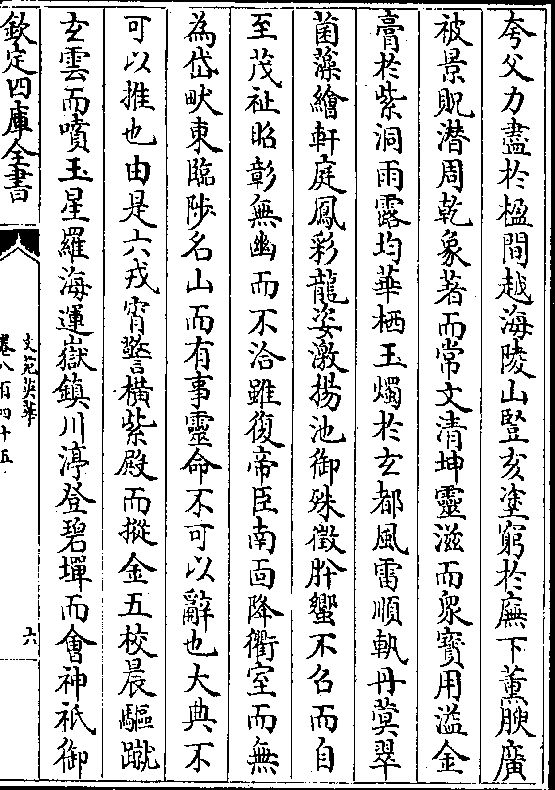 夸父力盡於楹間越海陵山豎亥塗窮於廡下薰腴廣
被景貺潛周乾象著而常文清坤靈滋而衆寳用溢金
膏於紫洞雨露均華栖玉燭於玄都風雷順軌丹蓂翠
菌藻繪軒庭鳳彩龍姿激揚池御殊徵肸蠁不召而自
至茂祉昭彰無幽而不洽雖復帝臣南面降衢室而無
為岱畎東臨陟名山而有事靈命不可以辭也大典不
可以推也由是六戎宵警横紫殿而摐金五校晨驅蹴
玄雲而噴玉星羅海運嶽鎮川渟登碧墠而會神祇御
欽定四庫全書
文苑英華
卷八百四十五
六